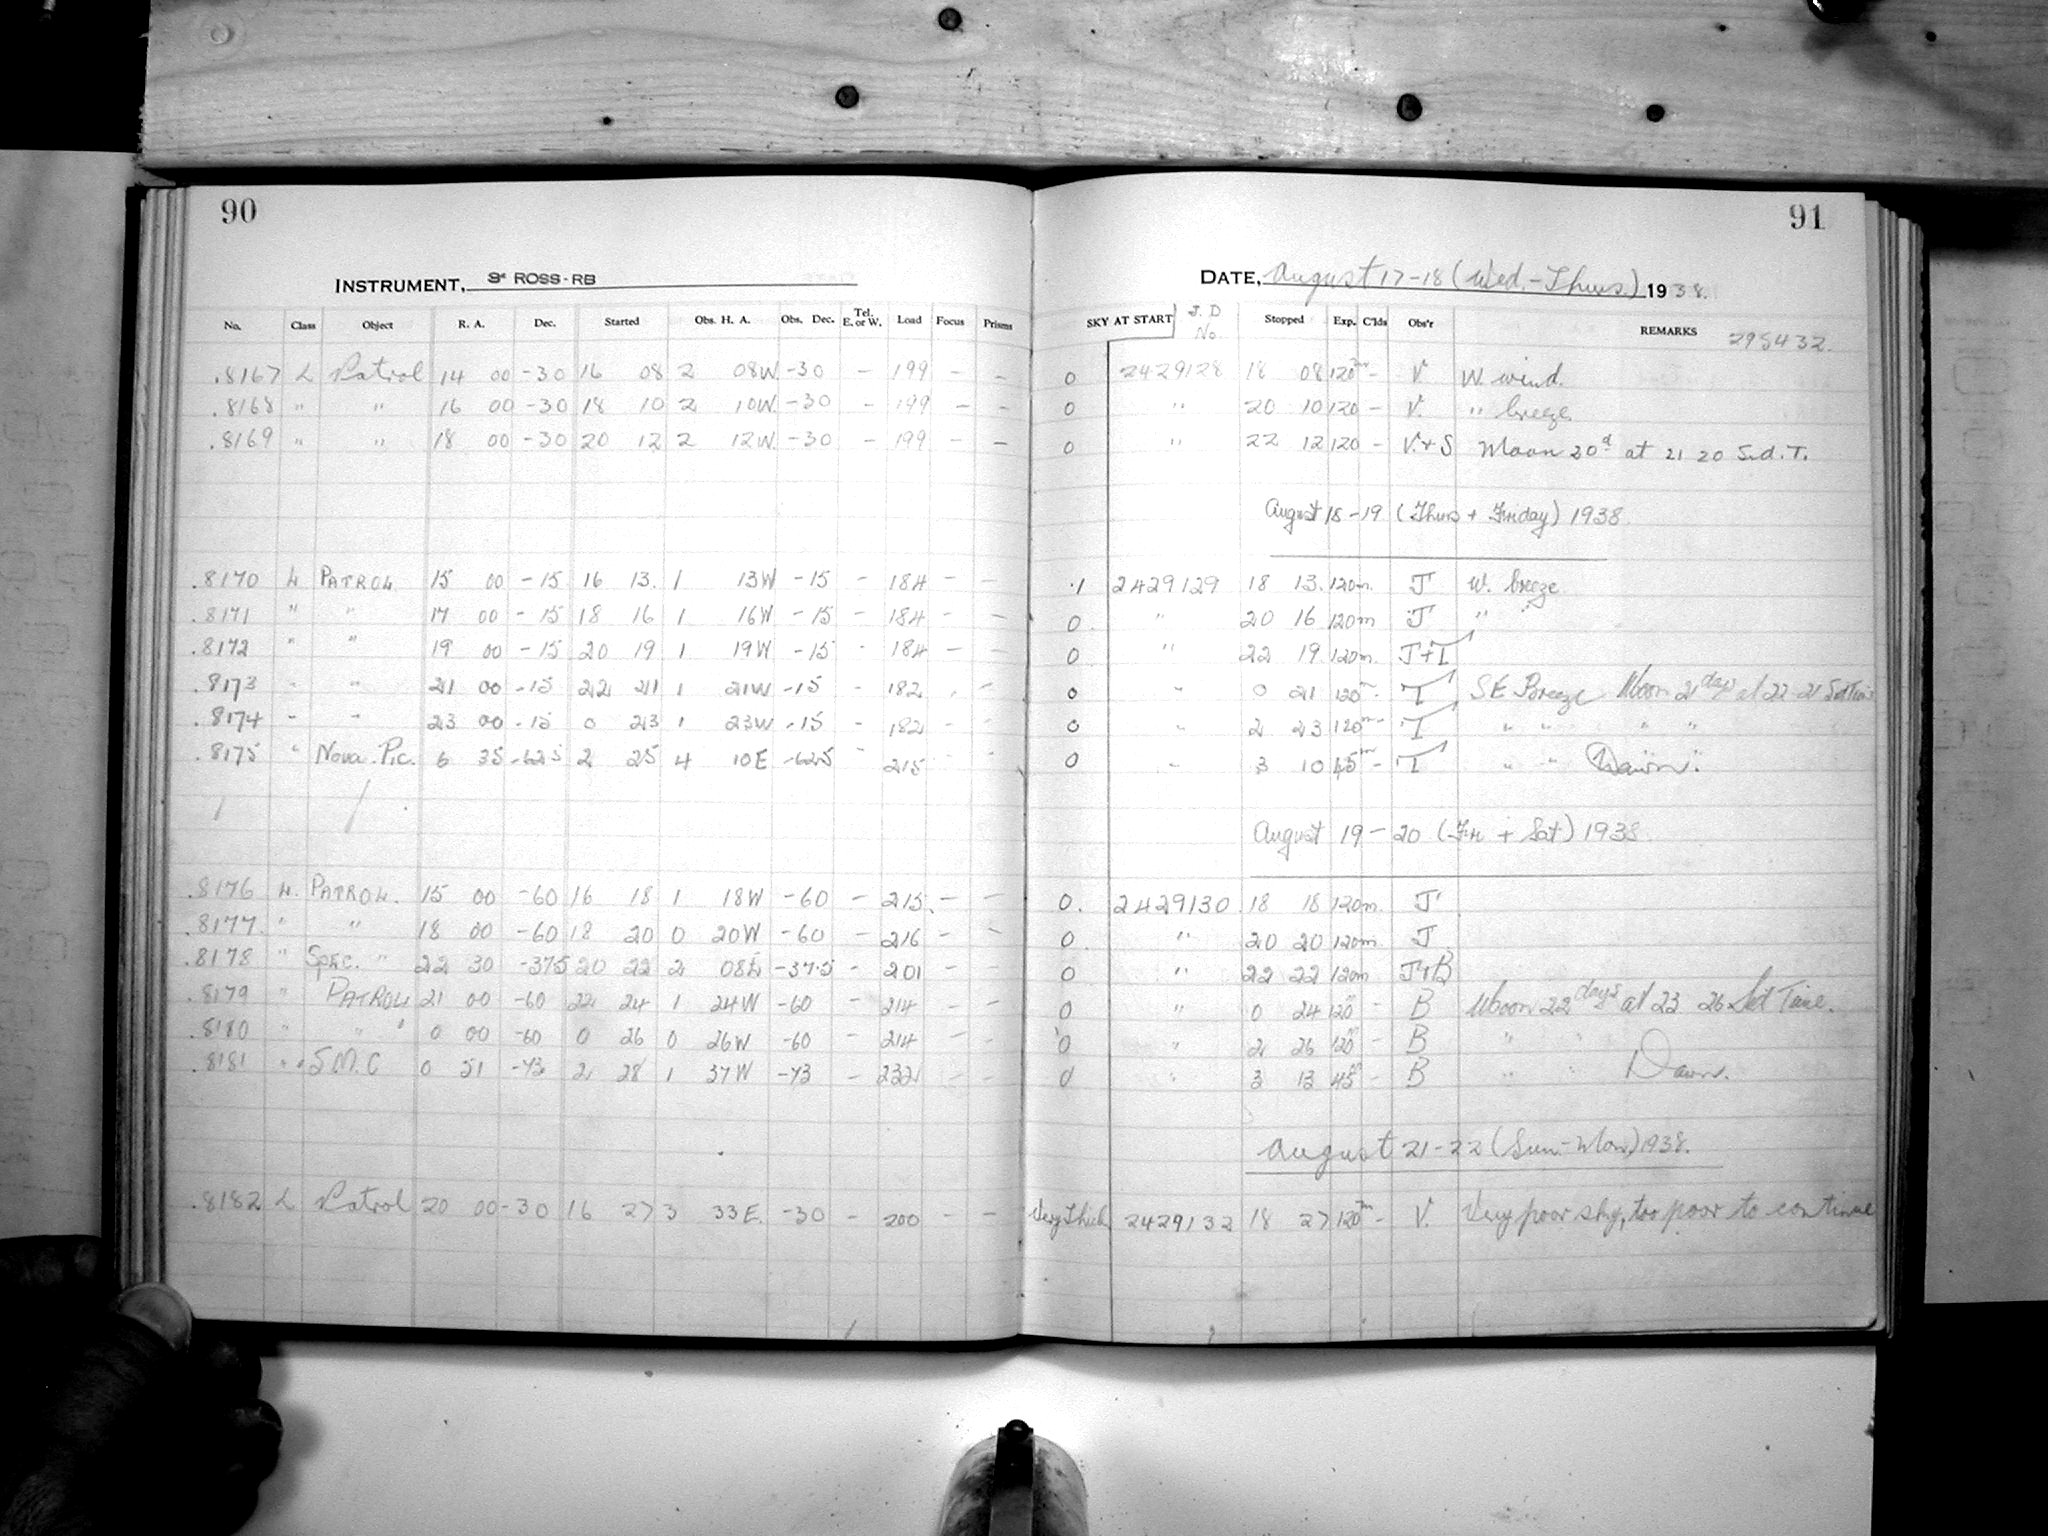 90
INSTRUMENT, 3" ROSS-RB
No. Class Object R. A. Dec. Started Obs. H. A. Obs. Dec. Tel. E. or W. Load Focus Prisms
.8167 L Patrol 14 00 -30 16 08 2 08W -30 - 199 - -
.8168 " " 16 00 -30 18 10 2 10W -30 - 199 - -
.8169 " " 18 00 -30 20 12 2 12W -30 - 199 - -
.8170 L PATROL 15 00 -15 16 13. 1 13W -15 - 184 - -
.8171 " " 17 00 -15 18 16 1 16W -15 - 184 - -
.8172 " " 19 00 -15 20 19 1 19W -15 - 184 - -
.8173 " " 21 00 -15 22 21 1 21W -15 - 182 - -
.8174 " " 23 00 -15 0 23 1 23W -15 - 182 - -
.8175 " Nova. Pic. 6 35 -62.5 2 25 4 10E -62.5 - 215 - -
.8176 L. PATROL. 15 00 -60 16 18 1 18W -60 - 215. - -
.8177. " " 18 00 -60 18 20 0 20W -60 - 216 - -
.8178 " SPEC. " 22 30 -37.5 20 22 2 08E -37.5 - 201 - -
.8179 " PATROL 21 00 -60 22 24 1 24W -60 - 214 - -
.8180 " " 0 00 -60 0 26 0 26W -60 - 214 - -
.8181 " " S.M.C 0 51 -73 2 28 1 37W -73 - 232 - -
.8182 L Patrol 20 00 -30 16 27 3 33E. -30 - 200 - -
91
DATE, August 17-18 (Wed.-Thurs) 1938.
SKY AT START J. D No. Stopped Exp. C'lds Obs'r REMARKS 295432.
0 2429128 18 08 120m - V W. wind.
0 " 20 10 120 - V. " breeze
0 " 22 12 120 - V.+S Moon 20d at 21 20 S.d.T.
August 18-19 (Thurs + Friday) 1938.
.1 2429129 18 13. 120m. J W. breeze.
0. " 20 16 120m J "
0 " 22 19. 120m. J+T
0 " 0 21 120m - T SE Breeze Moon 21 days at 22-21 Sd Time
0 " 2 23 120m - T " " " "
0 " 3 10 45m - T " " Dawn.
August 19-20 (Fri + Sat) 1938.
0. 2429130. 18 18 120m. J
0. " 20 20 120m J
0 " 22 22 120m J+B
0 " 0 24 120m - B Moon 22 days at 23 26 Sd Time.
0 " 2 26 120m - B " "
0 " 3 13 45m - B " " Dawn.
August 21-22 (Sun-Mon) 1938.
Very Thick 2429132 18 27 120m - V. Very poor sky, too poor to continue